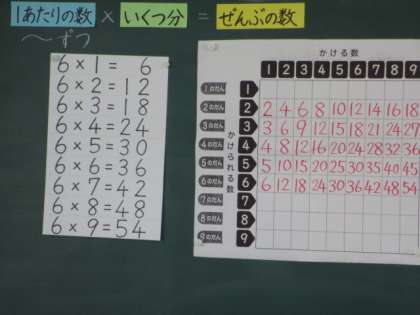 1あたりの数 × いくつ分 = ぜんぶの数
〜ずつ
6×1= 6
6×2=12
6×3=18
6×4=24
6×5=30
6×6=36
6×7=42
6×8=48
6×9=54
かける数
1 2 3 4 5 6 7 8 9
かけられる数
1のだん 1
2のだん 2 2 4 6 8 10 12 14 16 18
3のだん 3 3 6 9 12 15 18 21 24 27
4のだん 4 4 8 12 16 20 24 28 32 36
5のだん 5 5 10 15 20 25 30 35 40 45
6のだん 6 6 12 18 24 30 36 42 48 54
7のだん 7
8のだん 8
9のだん 9